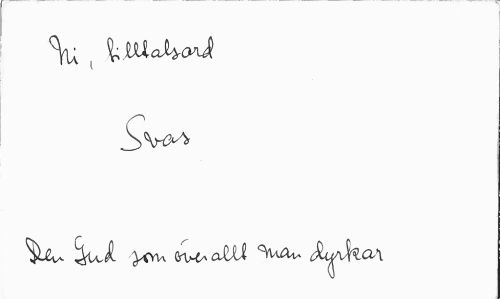 Ni, tilltalsord
Svar
Den Gud som överallt man dyrkar